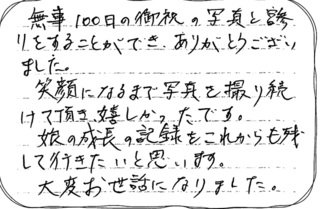 無事100日の御祝の写真と誂
りをすることができ、ありがとうござい
ました。
笑顔になるまで写真を撮り続
けて頂き、嬉しかったです。
娘の成長の記録をこれからも残
して行きたいと思います。
大変お世話になりました。